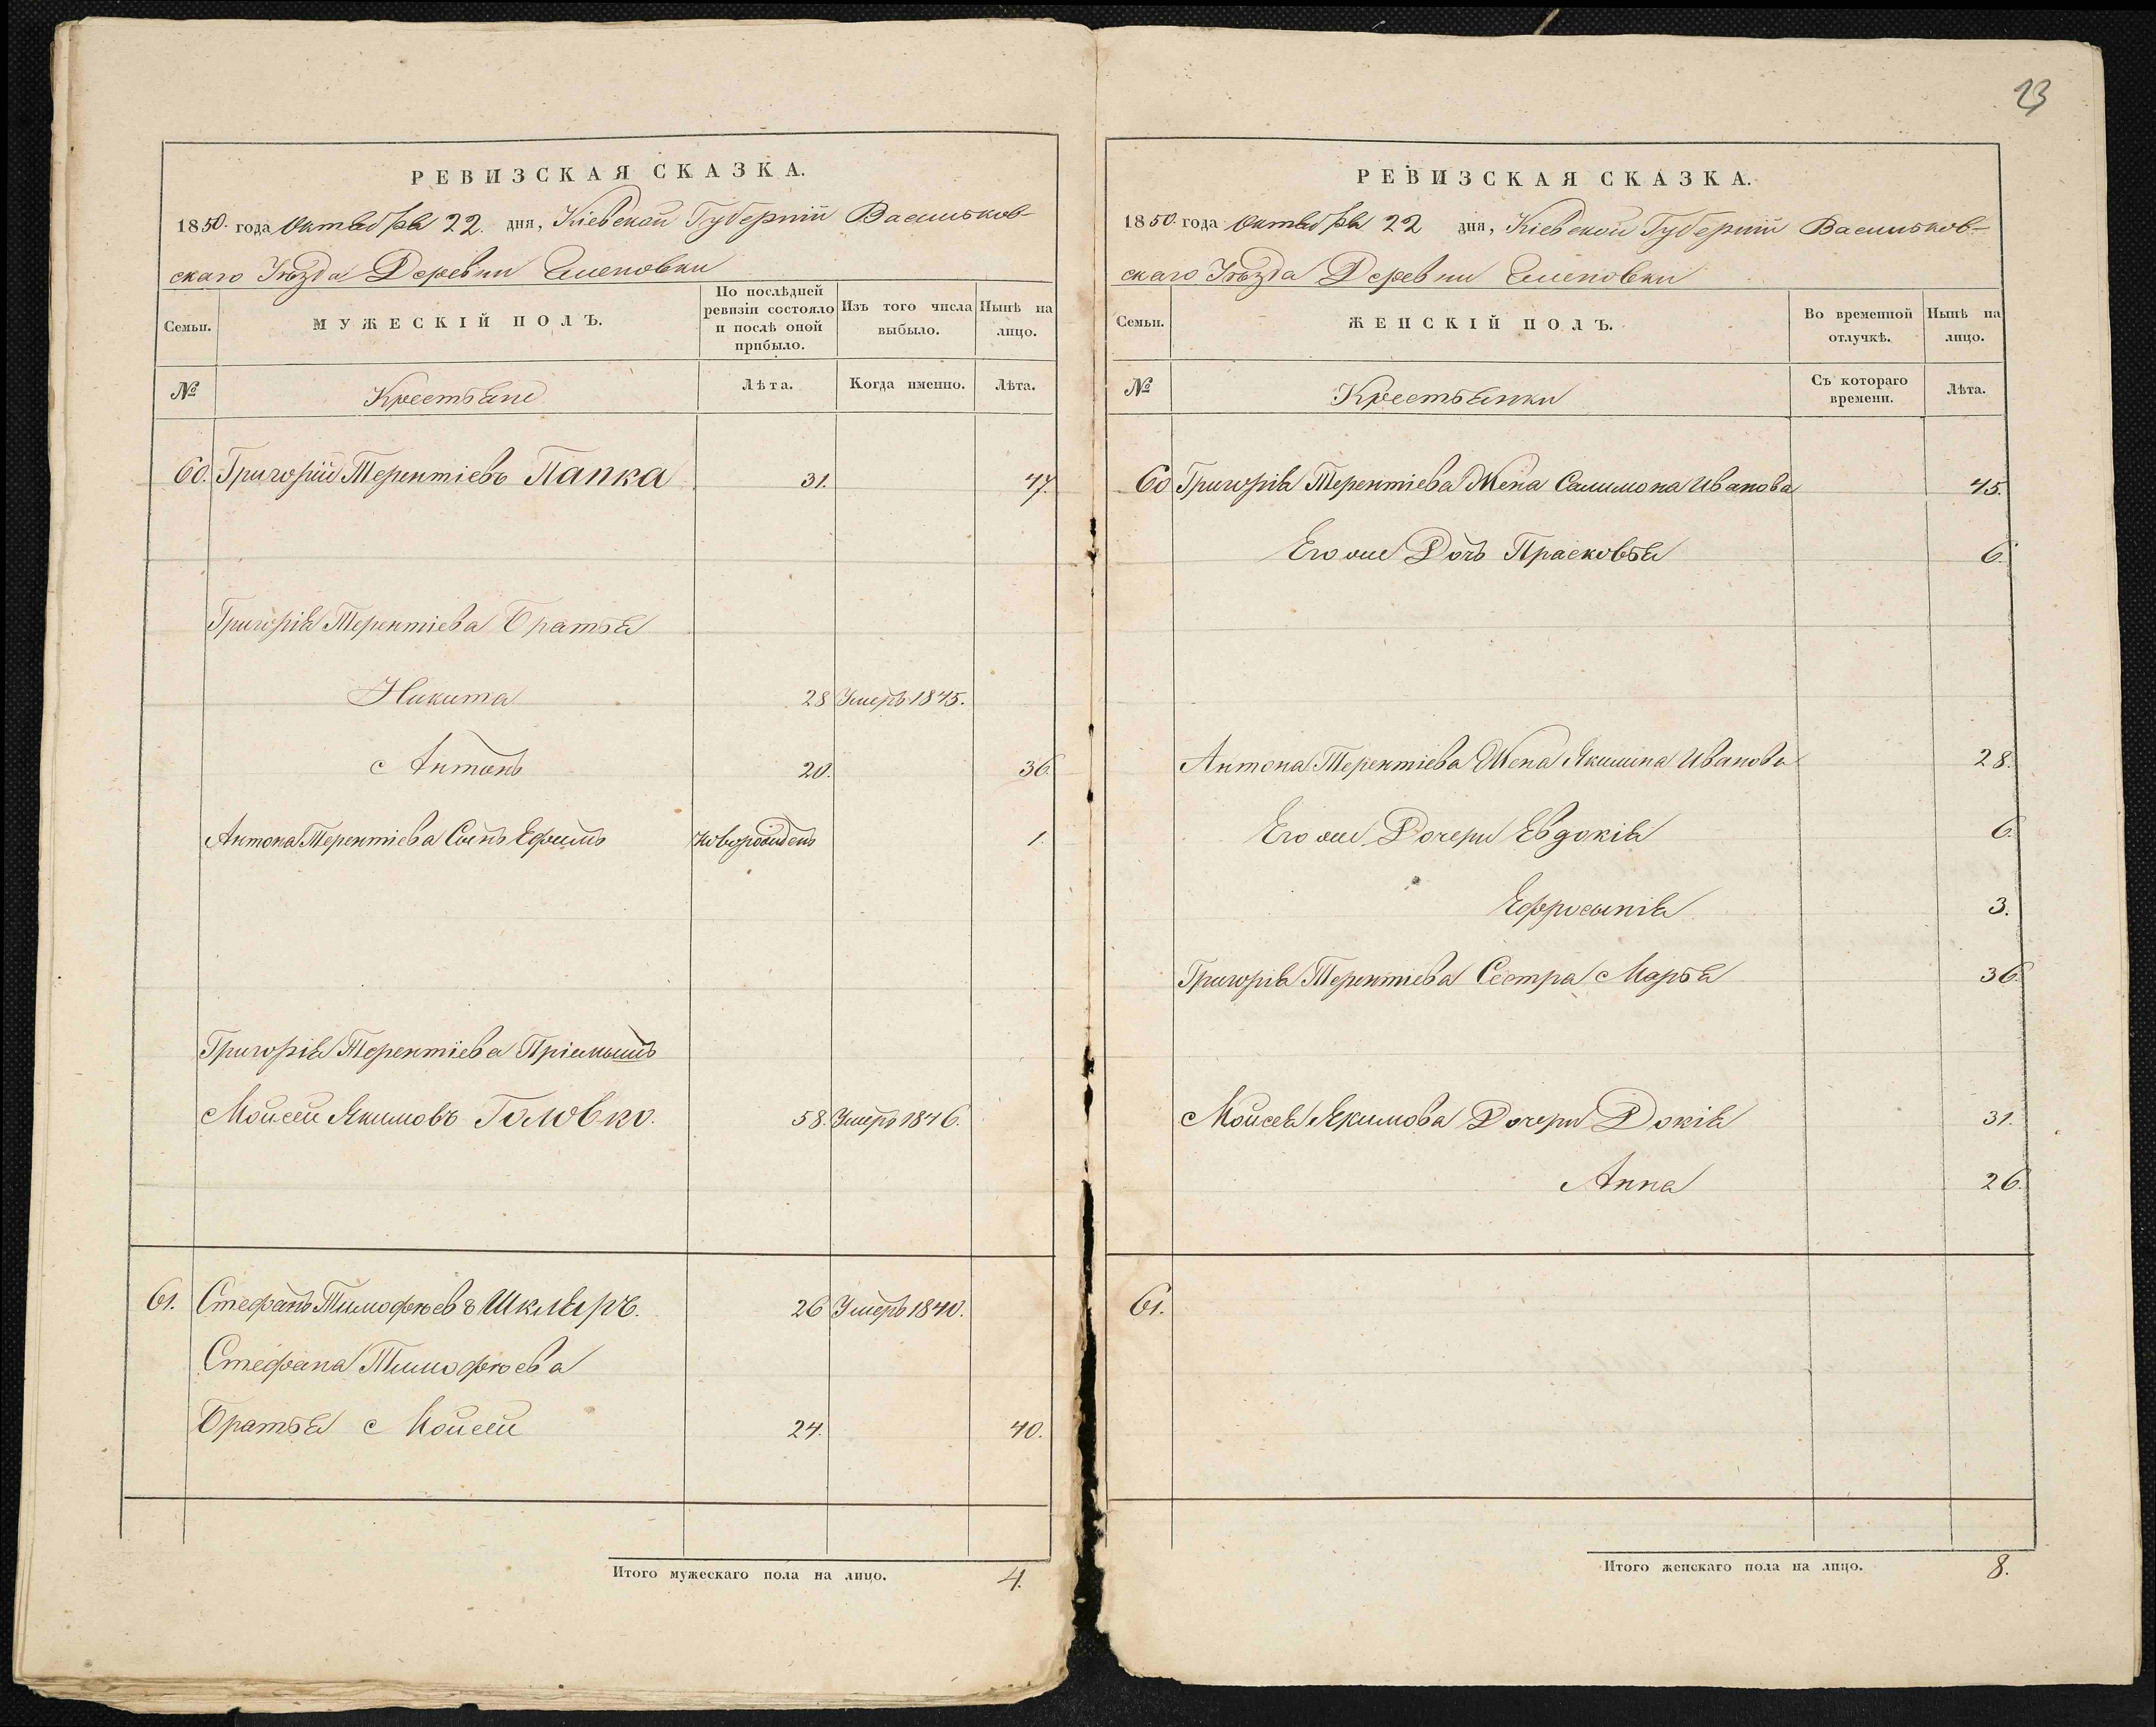 23
РЕВИЗСКАЯ СКАЗКА.
1850. года Октября 22. дня, Кіевской Губерніи Васильков-
скаго Уѣзда Деревни
Семьи.
МУЖЕСКІЙ ПОЛЪ.
По послѣдней ревизіи состояло и послѣ оной прибыло.
Изъ того числа выбыло.
Нынѣ на лицо.
№
Крестьяне
Лѣта.
Когда именно.
Лѣта.
60. Григорій Терентіевъ Папка 31. 47.
Григорія Терентіева Братья
Никита 28 Умеръ 1845.
Антонъ 20. 36.
Антона Терентіева Сынъ Ефимъ новорожденъ 1.
Григорія Терентіева Пріемышъ
Мойсей Якимовъ Головко. 58. Умеръ 1846.
61. Стефанъ Тимофѣевъ Шкляръ. 26 Умеръ 1840.
Стефана Тимофѣева
Братья Мойсей 24. 40.
Итого мужескаго пола на лицо. 4.
РЕВИЗСКАЯ СКАЗКА.
1850. года Октября 22 дня, Кіевской Губерніи Васильков-
скаго Уѣзда Деревни
Семьи.
ЖЕНСКІЙ ПОЛЪ.
Во временной отлучкѣ.
Нынѣ на лицо.
№
Крестьянки
Съ котораго времени.
Лѣта.
60 Григорія Терентіева Жена Иванова 45.
Его же Дочь Прасковья 6.
Антона Терентіева Жена Якимина Иванова 28.
Его же Дочери Евдокія 6.
Ефросинія 3.
Григорія Терентіева Сестра Марья 36.
Мойсея Якимова Дочери Докія 31.
Анна 26.
61.
Итого женскаго пола на лицо. 8.